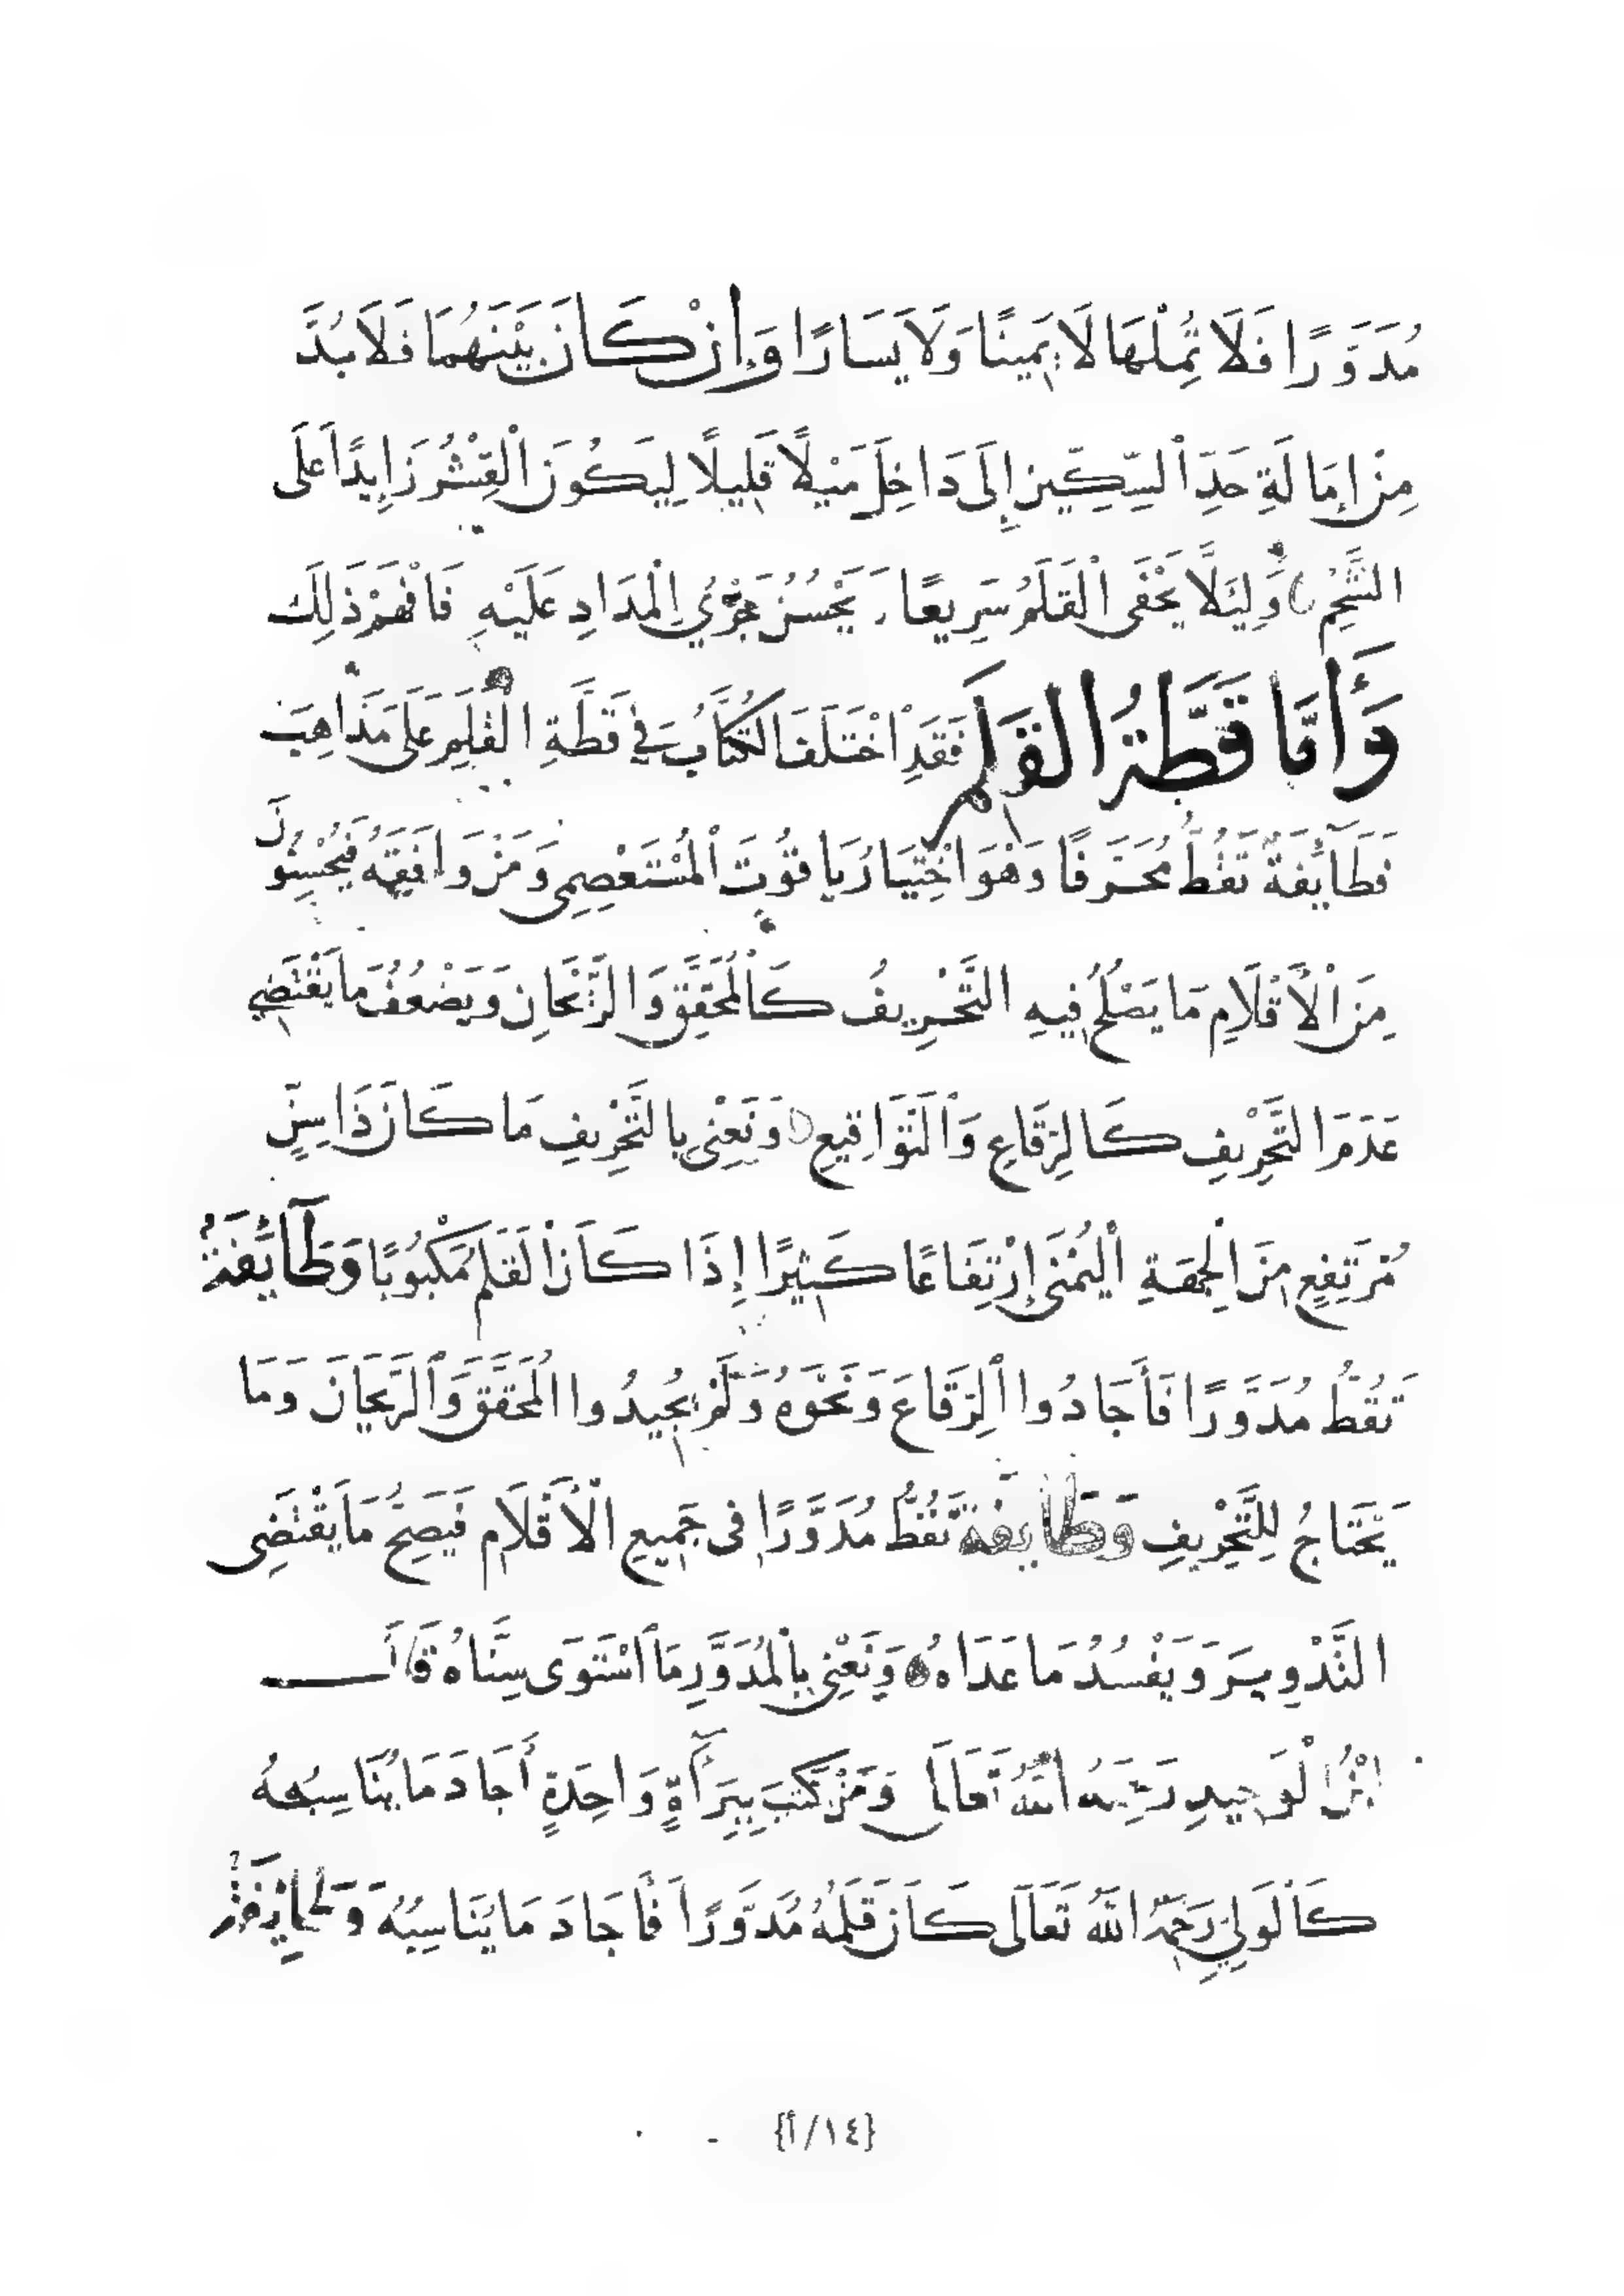 مُدَوَّرًا فَلَا تُمِلْهَا لَا يَمِينًا وَلَا يَسَارًا وَإِنْ كَانَ بَيْنَهُمَا فَلَا بُدَّ
مِنْ إِمَالَةِ حَدِّ السِّكِّينِ إِلَى دَاخِلَ مَيْلًا قَلِيلًا لِيَكُونَ الْقِشْرُ زَايِدًا عَلَى
الشَّحْمِ وَلِيَلَّا يَحْفَى الْقَلَمُ سَرِيعًا يَحْسُنُ جَرْيُ الْمَدَادِ عَلَيْهِ فَافْهَمْ ذَلِكَ
وَأَمَّا قَطَّةُ الْقَلَمِ فَقَدِ اخْتَلَفَ الْكُتَّابُ فِي قَطَّةِ الْقَلَمِ عَلَى مَذَاهِبَ
فَطَآئِفَةٌ تَقُطُّ مُحَرَّفًا وَهْوَ اخْتِيَارُ يَاقُوتَ الْمُسْتَعْصِمِي وَمَنْ وَافَقَهُ فَيُحْسِنُونَ
مِنَ الْأَقْلَامِ مَا يَصْلُحُ فِيهِ التَّحْرِيفُ كَالْمُحَقَّقِ وَالرَّيْحَانِ وَيَضْعُفُ مَا يَقْتَضِي
عَدَمَ التَّحْرِيفِ كَالرِّقَاعِ وَالتَّوَاقِيعِ وَنَعْنِي بِالتَّحْرِيفِ مَا كَانَ ذَا سِنٍّ
مُرْتَفِعٍ مِنَ الْجِهَةِ الْيُمْنَى إِرْتِفَاعًا كَثِيرًا إِذَا كَانَ الْقَلَمُ مَكْبُوبًا وَطَآئِفَةٌ
تَقُطُّ مُدَوَّرًا فَأَجَادُوا الرِّقَاعَ وَنَحْوَهُ وَلَمْ يُجِيدُوا الْمُحَقَّقَ وَالرَّيْحَانَ وَمَا
يَحْتَاجُ لِلتَّحْرِيفِ وَطَايِفَةٌ تَقُطُّ مُدَوَّرًا فِي جَمِيعِ الْأَقْلَامِ فَيَصِحُّ مَا يَقْتَضِي
التَّدْوِيرَ وَيَفْسُدُ مَا عَدَاهُ وَنَعْنِي بِالْمُدَوَّرِ مَا اسْتَوَى سِنَّاهُ قَالَ
ابْنُ الْوَحِيدِ رَحِمَهُ اللَّهُ تَعَالَى وَمَنْ كَتَبَ بِبَرَأَةٍ وَاحِدَةٍ أَجَادَ مَا يُنَاسِبُهُ
كَالْوَلِيِّ رَحِمَهُ اللَّهُ تَعَالَى كَانَ قَلَمُهُ مُدَوَّرًا فَأَجَادَ مَا يُنَاسِبُهُ وَطَايِفَةٌ
{١٤/أ}